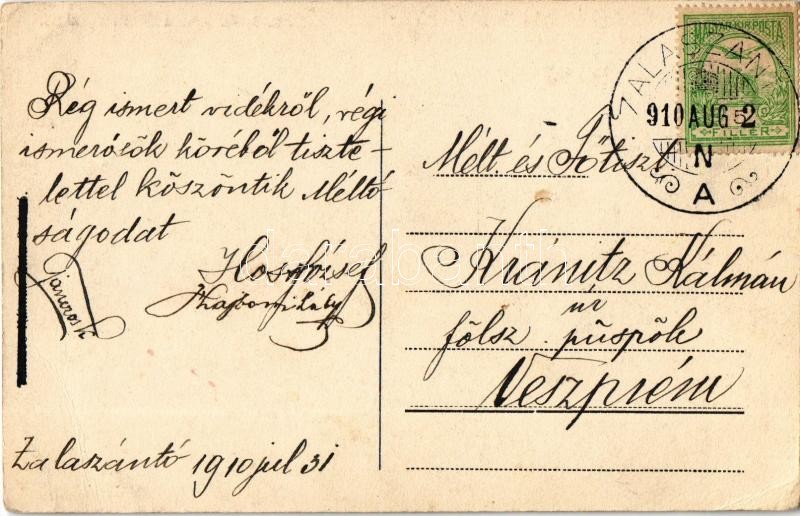 Rég ismert vidékről, régi
ismerősök köréből tiszte-
lettel köszöntik Méltó
ságodat
József
Zalaszántó 1910 jul 31
MAGYAR KIR. POSTA
5
FILLÉR
ZALASZÁN
910 AUG 2
N
A
Mélt. és Főtiszt.
Kránitz Kálmán
úr
fölsz. püspök
Veszprém